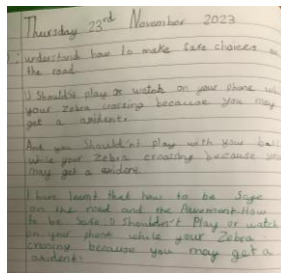 Thursday 23rd November 2023
understand how to make safe choices on
the road
I Shouldse play or watch on your phone whi
your zebra crossing because you may
get a axident.
And you Shouldn't play with your ball
while your zebra crossing because you
may get a axident.
I have learnt that how to be Safe
on the road and the Pavement. How
to be safe. I Shouldn't Play or watch
on your phone while your Zebra
crossing because you may get a
axident.